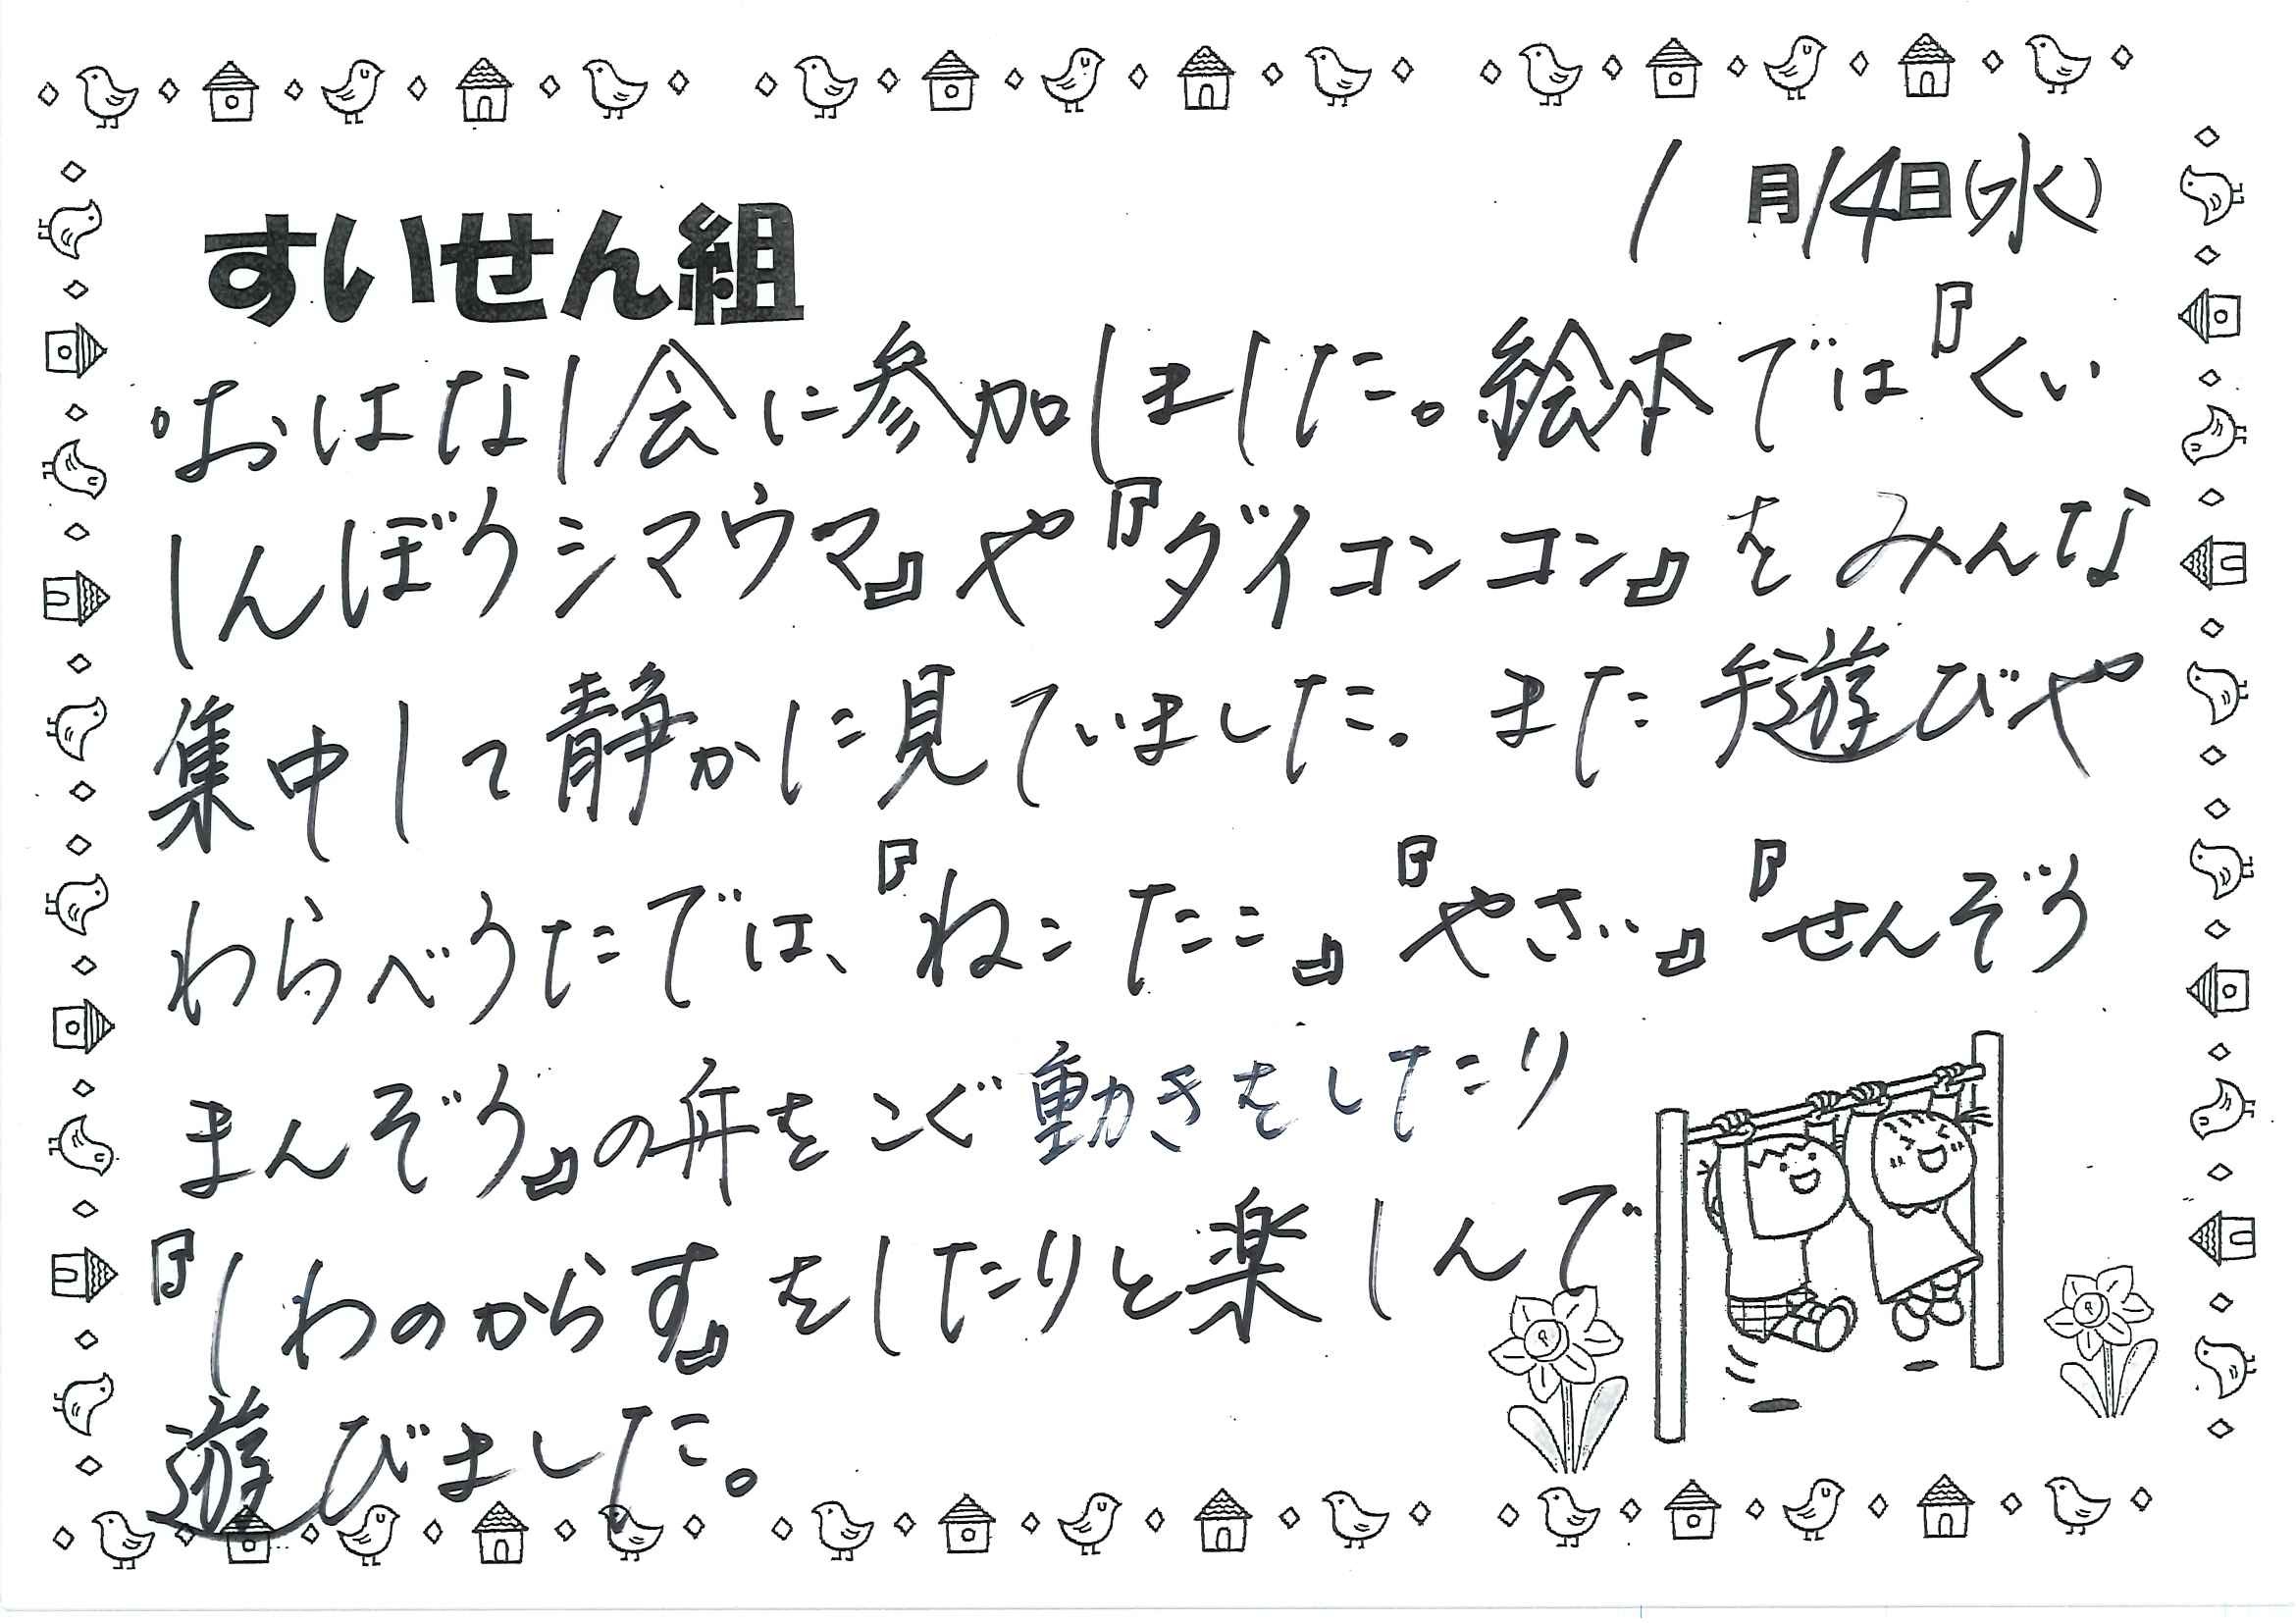 1月14日(水)
すいせん組
。おはなし会に参加しました。絵本では『くい
しんぼうシマウマ』や『ダイコンコン』をみんな
集中して静かに見ていました。また手遊びや
わらべうたでは、『ねこたこ』『やさい』『せんぞう
まんぞう』の舟をこぐ動きをしたり
『しわのからす』をしたりと楽しんで
遊びました。